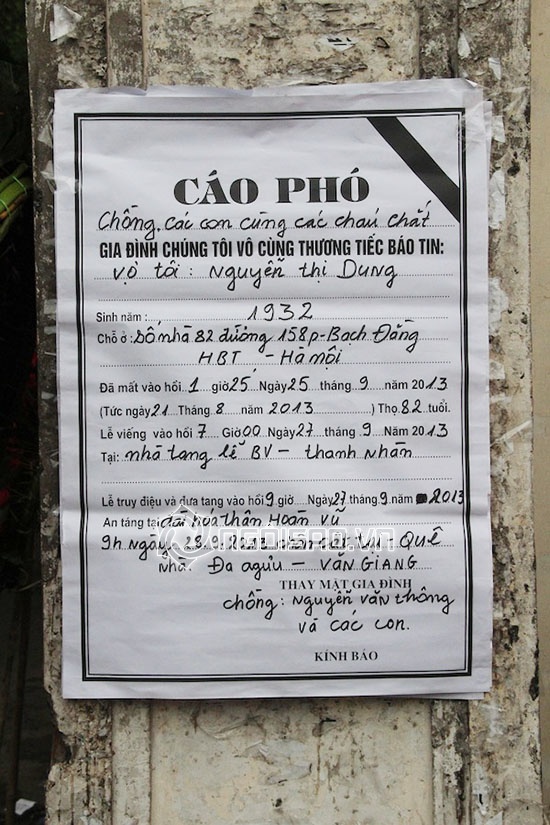 CÁO PHÓ
Chồng, các con cùng các cháu chắt
GIA ĐÌNH CHÚNG TÔI VÔ CÙNG THƯƠNG TIẾC BÁO TIN:
Vợ tôi: Nguyễn Thị Dung
Sinh năm: 1932
Chỗ ở: Số nhà 82 đường 158 p-Bạch Đằng
HBT - Hà nội
Đã mất vào hồi 1 giờ 25 Ngày 25 tháng 9 năm 2013
(Tức ngày 21 Tháng 8 năm 2013) Thọ 82 tuổi.
Lễ viếng vào hồi 7 Giờ 00 Ngày 27 tháng 9 Năm 2013
Tại: nhà tang lễ BV - thanh Nhàn
Lễ truy điệu và đưa tang vào hồi 9 giờ Ngày 27 tháng 9 năm 2013
An táng tại đài hóa thân Hoàn Vũ
9h ngày 28.9.2013 Quê
nhà. Đa ngưu - VĂN GIANG
THAY MẶT GIA ĐÌNH
chồng: Nguyễn văn thông
và các con.
KÍNH BÁO
NGÔISAO.VN